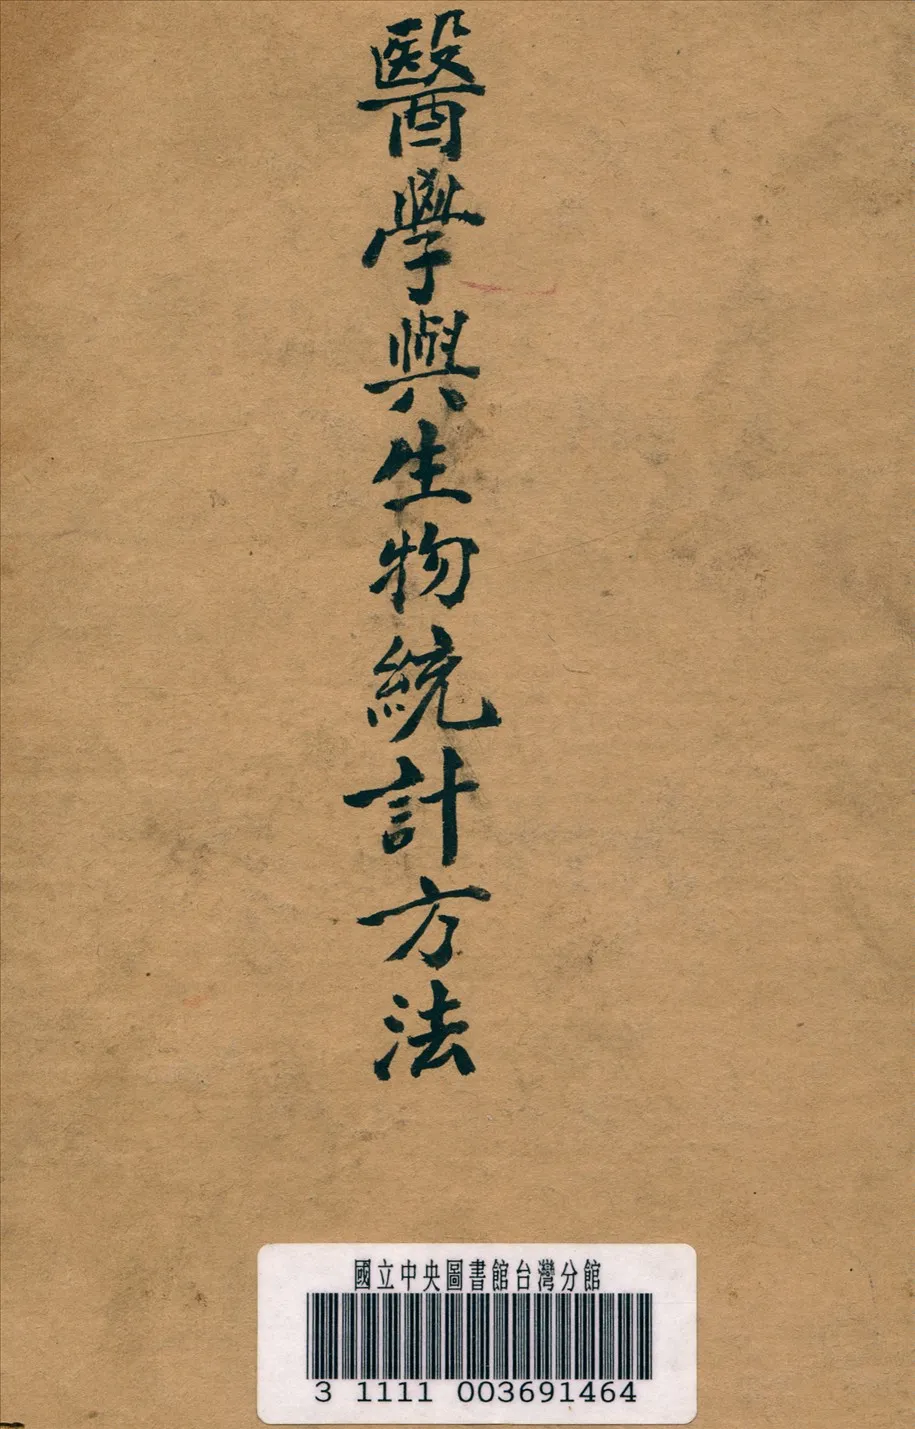 醫學與生物統計方法
國立中央圖書館台灣分館
3 1111 003691464